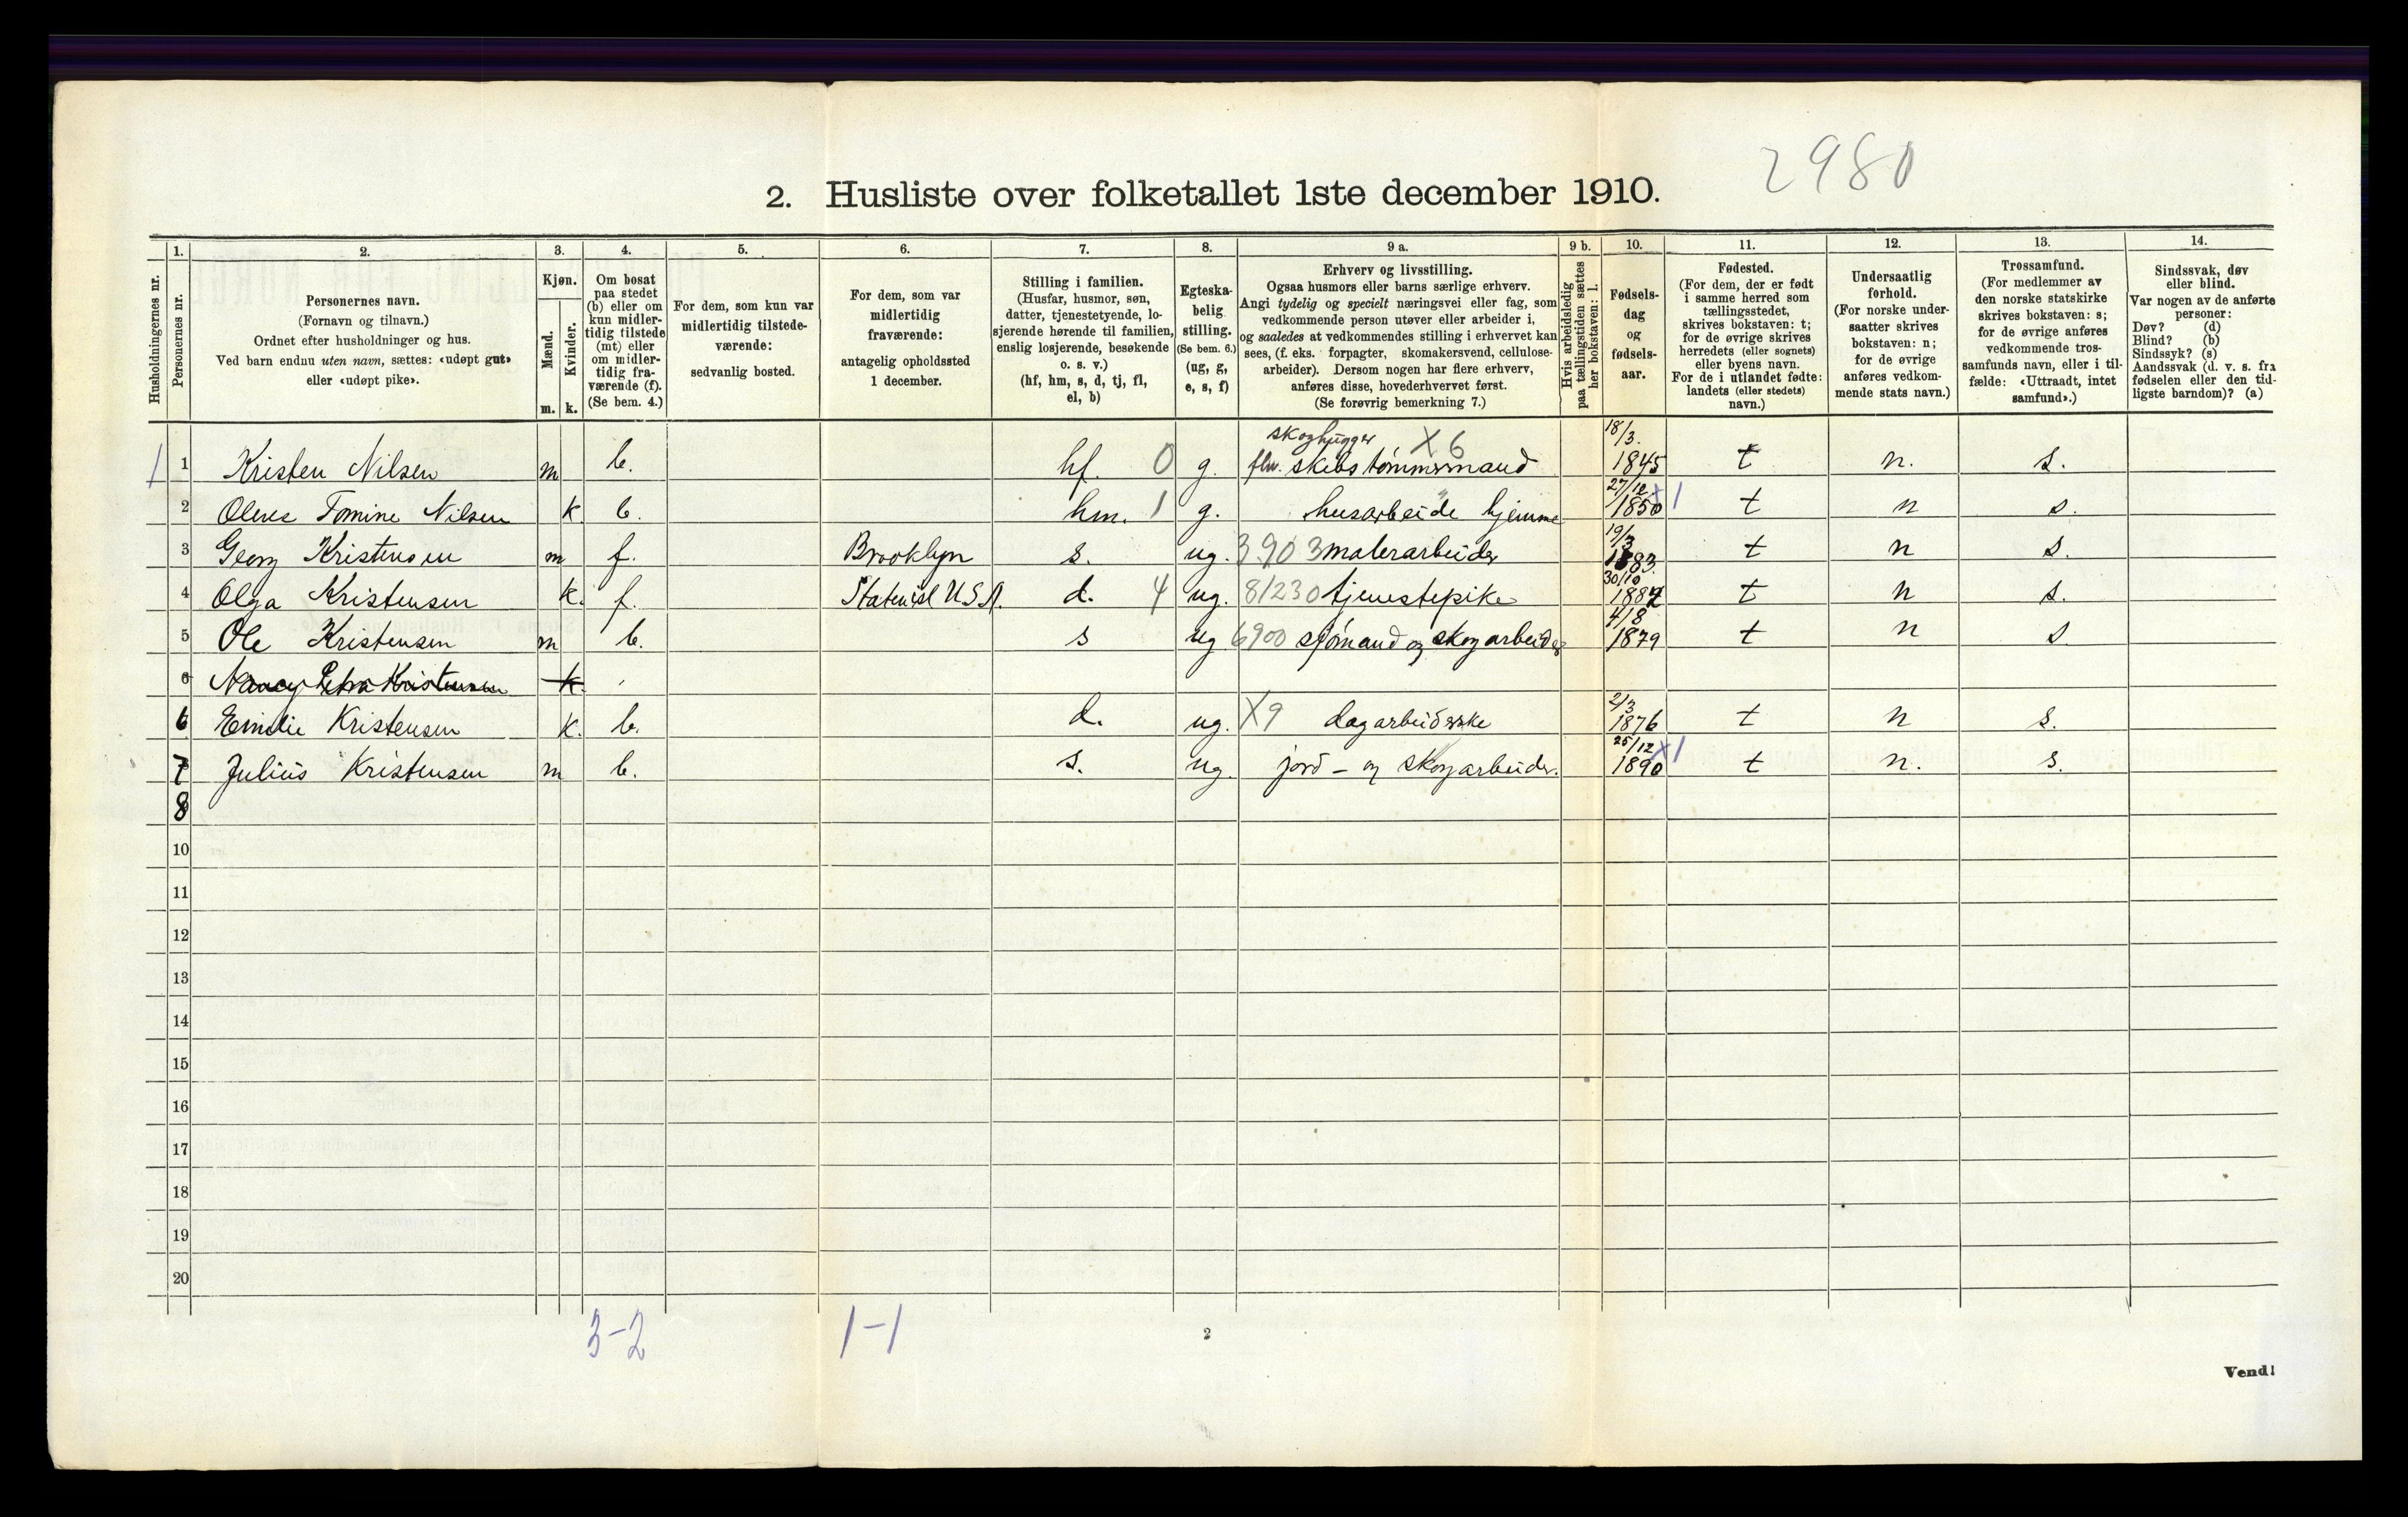 2980
2. Husliste over folketallet 1ste december 1910.
Husholdningernes nr.
1. Personernes nr.
2. Personernes navn.
(Fornavn og tilnavn.)
Ordnet efter husholdninger og hus.
Ved barn endnu uten navn, sættes: «udøpt gut»
eller «udøpt pike».
3. Kjøn.
Mænd. Kvinder.
m. k.
4. Om bosat
paa stedet
(b) eller om
kun midler-
tidig tilstede
(mt) eller
om midler-
tidig fra-
værende (f).
(Se bem. 4.)
5. For dem, som kun var
midlertidig tilstede-
værende:
sedvanlig bosted.
6. For dem, som var
midlertidig
fraværende:
antagelig opholdssted
1 december.
7. Stilling i familien.
(Husfar, husmor, søn,
datter, tjenestetyende, lo-
sjerende hørende til familien,
enslig losjerende, besøkende
o. s. v.)
(hf, hm, s, d, tj, fl,
el, b)
8. Egteska-
belig
stilling.
(Se bem. 6.)
(ug, g,
e, s, f)
9 a. Erhverv og livsstilling.
Ogsaa husmors eller barns særlige erhverv.
Angi tydelig og specielt næringsvei eller fag, som
vedkommende person utøver eller arbeider i,
og saaledes at vedkommendes stilling i erhvervet kan
sees, (f. eks. forpagter, skomakersvend, cellulose-
arbeider). Dersom nogen har flere erhverv,
anføres disse, hovederhvervet først.
(Se forøvrig bemerkning 7.)
9 b. Hvis arbeidsledig
paa tællingstiden sættes
her bokstaven: l.
10. Fødsels-
dag
og
fødsels-
aar.
11. Fødested.
(For dem, der er født
i samme herred som
tællingsstedet,
skrives bokstaven: t;
for de øvrige skrives
herredets (eller sognets)
eller byens navn.
For de i utlandet fødte:
landets (eller stedets)
navn.)
12. Undersaatlig
forhold.
(For norske under-
saatter skrives
bokstaven: n;
for de øvrige
anføres vedkom-
mende stats navn.)
13. Trossamfund.
(For medlemmer av
den norske statskirke
skrives bokstaven: s;
for de øvrige anføres
vedkommende tros-
samfunds navn, eller i til-
fælde: «Uttraadt, intet
samfund».)
14. Sindssvak, døv
eller blind.
Var nogen av de anførte
personer:
Døv? (d)
Blind? (b)
Sindssyk? (s)
Aandssvak (d. v. s. fra
fødselen eller den tid-
ligste barndom)? (a)
skoghugger X6 18/3.
1 1 Kristen Nilsen m b. hf. 0 g. flv. skibstømmermand 1845 t n. s.
27/12 X1
2 Tomine Nilsen k b. hm. 1 g. husarbeide hjemme 1850 t n s.
19/3
3 Georg Kristensen m f. Brooklyn s. ug. 3903 malerarbeider 1883. t n s.
30/10
4 Olga Kristensen k. f. Statenisl U.S.A. d. 4 ug. 81230 tjenestepike 1887 t n s.
4/8
5 Ole Kristensen m b. s ug 6900 sjømand og skogarbeider 1879 t n s
6 Petra Kristensen k.
2/3
6 Emilie Kristensen k. b. d. ug. X9 dagarbeiderske 1876 t n s.
25/12 X1
7 Julius Kristensen m b. s. ug. jord - og skogarbeider. 1890 t n. s.
8
10
11
12
13
14
15
16
17
18
19
20
3-2 1-1
2
Vend!